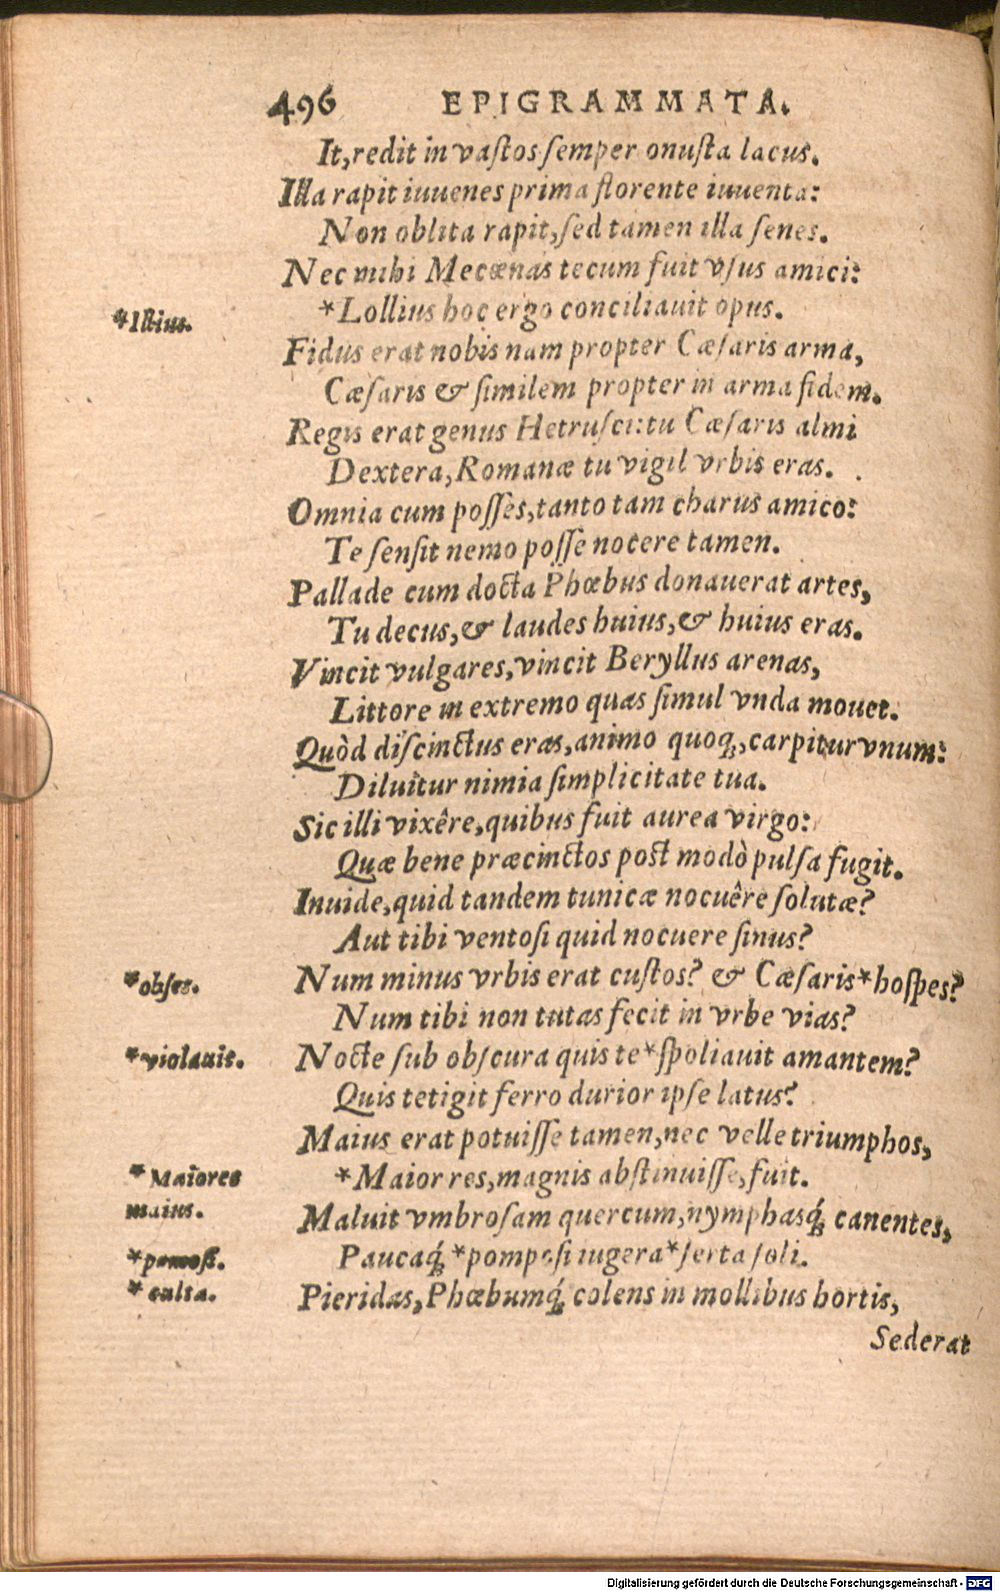 496 EPIGRAMMATA.
It, redit in vaſtos ſemper onuſta lacus.
Illa rapit iuuenes prima florente iuuenta:
Non oblita rapit, ſed tamen illa ſenes.
Nec mihi Mecœnas tecum fuit vſus amici:
*Lollius hoc ergo conciliauit opus.
*Illius.
Fidus erat nobis nam propter Cæſaris arma,
Cæſaris & ſimilem propter in arma fidem.
Regis erat genus Hetruſci: tu Cæſaris almi
Dextera, Romanæ tu vigil vrbis eras.
Omnia cum poſſes, tanto tam charus amico:
Te ſenſit nemo poſſe nocere tamen.
Pallade cum docta Phœbus donauerat artes,
Tu decus, & laudes huius, & huius eras.
Vincit vulgares, vincit Beryllus arenas,
Littore in extremo quas ſimul vnda mouet.
Quòd diſcinctus eras, animo quoq;, carpitur vnum:
Diluitur nimia ſimplicitate tua.
Sic illi vixêre, quibus fuit aurea virgo:
Quæ bene præcinctos poſt modò pulſa fugit.
Inuide, quid tandem tunicæ nocuêre ſolutæ?
Aut tibi ventoſi quid nocuere ſinus?
Num minus vrbis erat cuſtos? & Cæſaris *hoſpes?
*obſes.
Num tibi non tutas fecit in vrbe vias?
Nocte ſub obſcura quis te *ſpoliauit amantem?
*violauit.
Quis tetigit ferro durior ipſe latus?
Maius erat potuiſſe tamen, nec velle triumphos,
*Maior res, magnis abſtinuiſſe, fuit.
*Maiores
maius.
Maluit vmbroſam quercum, nymphasq́; canentes,
Paucaq́; *pompoſi iugera *ſerta ſoli.
*pomoſi.
*culta.
Pieridas, Phœbumq́; colens in mollibus hortis,
Sederat
Digitalisierung gefördert durch die Deutsche Forschungsgemeinschaft - DFG